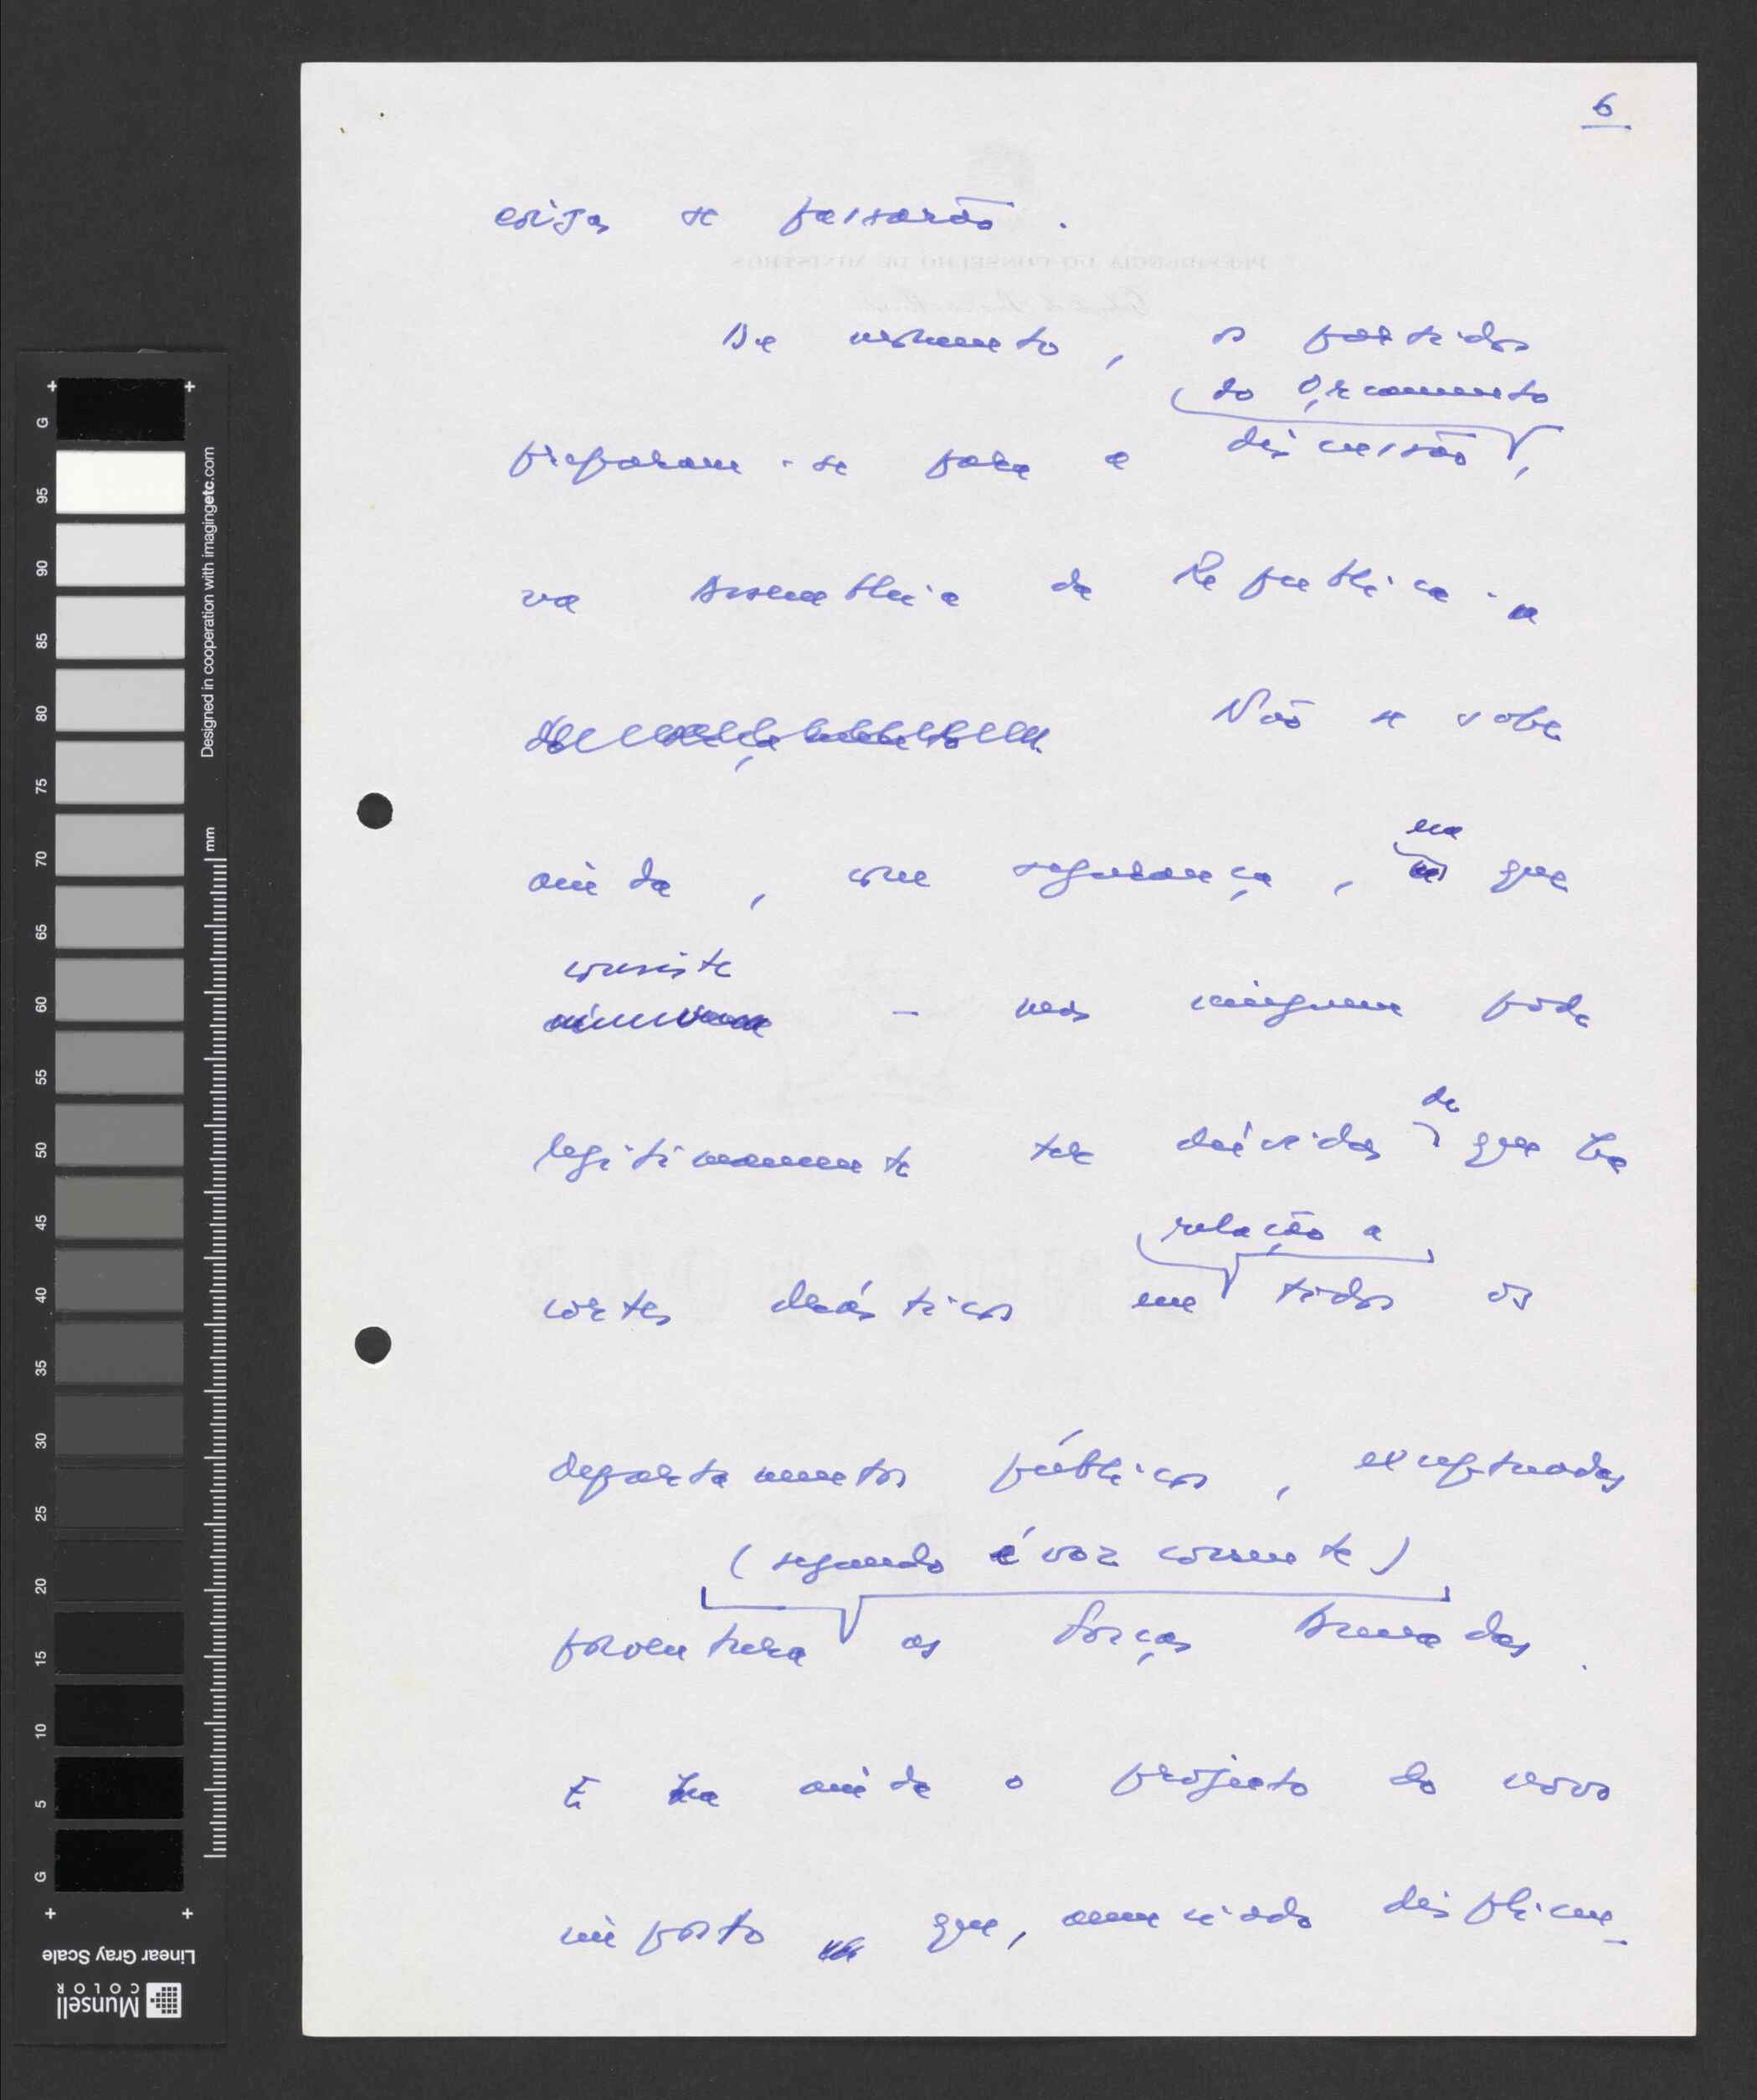 6
coisas se passarão.
De momento, os partidos
do Orçamento
preparam-se para a discussão,
na Assembleia da República.
Não se sabe
ainda, com segurança, em que
consiste
– mas ninguem pode
legitimamente ter dúvidas de que há
relação a
cortes drásticos em todos os
departamentos públicos, exceptuadas
(segundo é voz corrente)
porventura as Forças Armadas.
E há ainda o projecto do novo
imposto que, anunciado displicen-
PRESIDÊNCIA DO CONSELHO DE MINISTROS
Designed in cooperation with imagingetc.com
mm
G
95
90
85
80
75
70
65
60
55
50
45
40
35
30
25
20
15
10
5
G
Linear Gray Scale
Munsell
COLOR